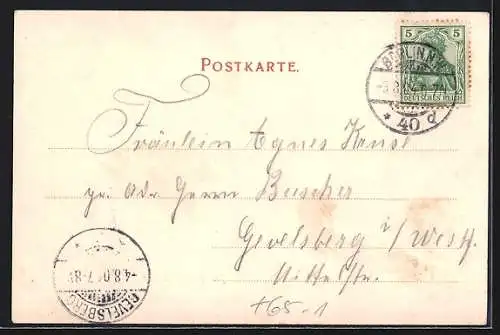 5 5
DEUTSCHES REICH
BERLIN N.W.
40 d
POSTKARTE.
Fräulein Agnes
pr. Adr. Herrn Buscher
Gevelsberg i/ Westf.
Mittelstr.
GEVELSBERG
-4.8.0 7-8
+65-1